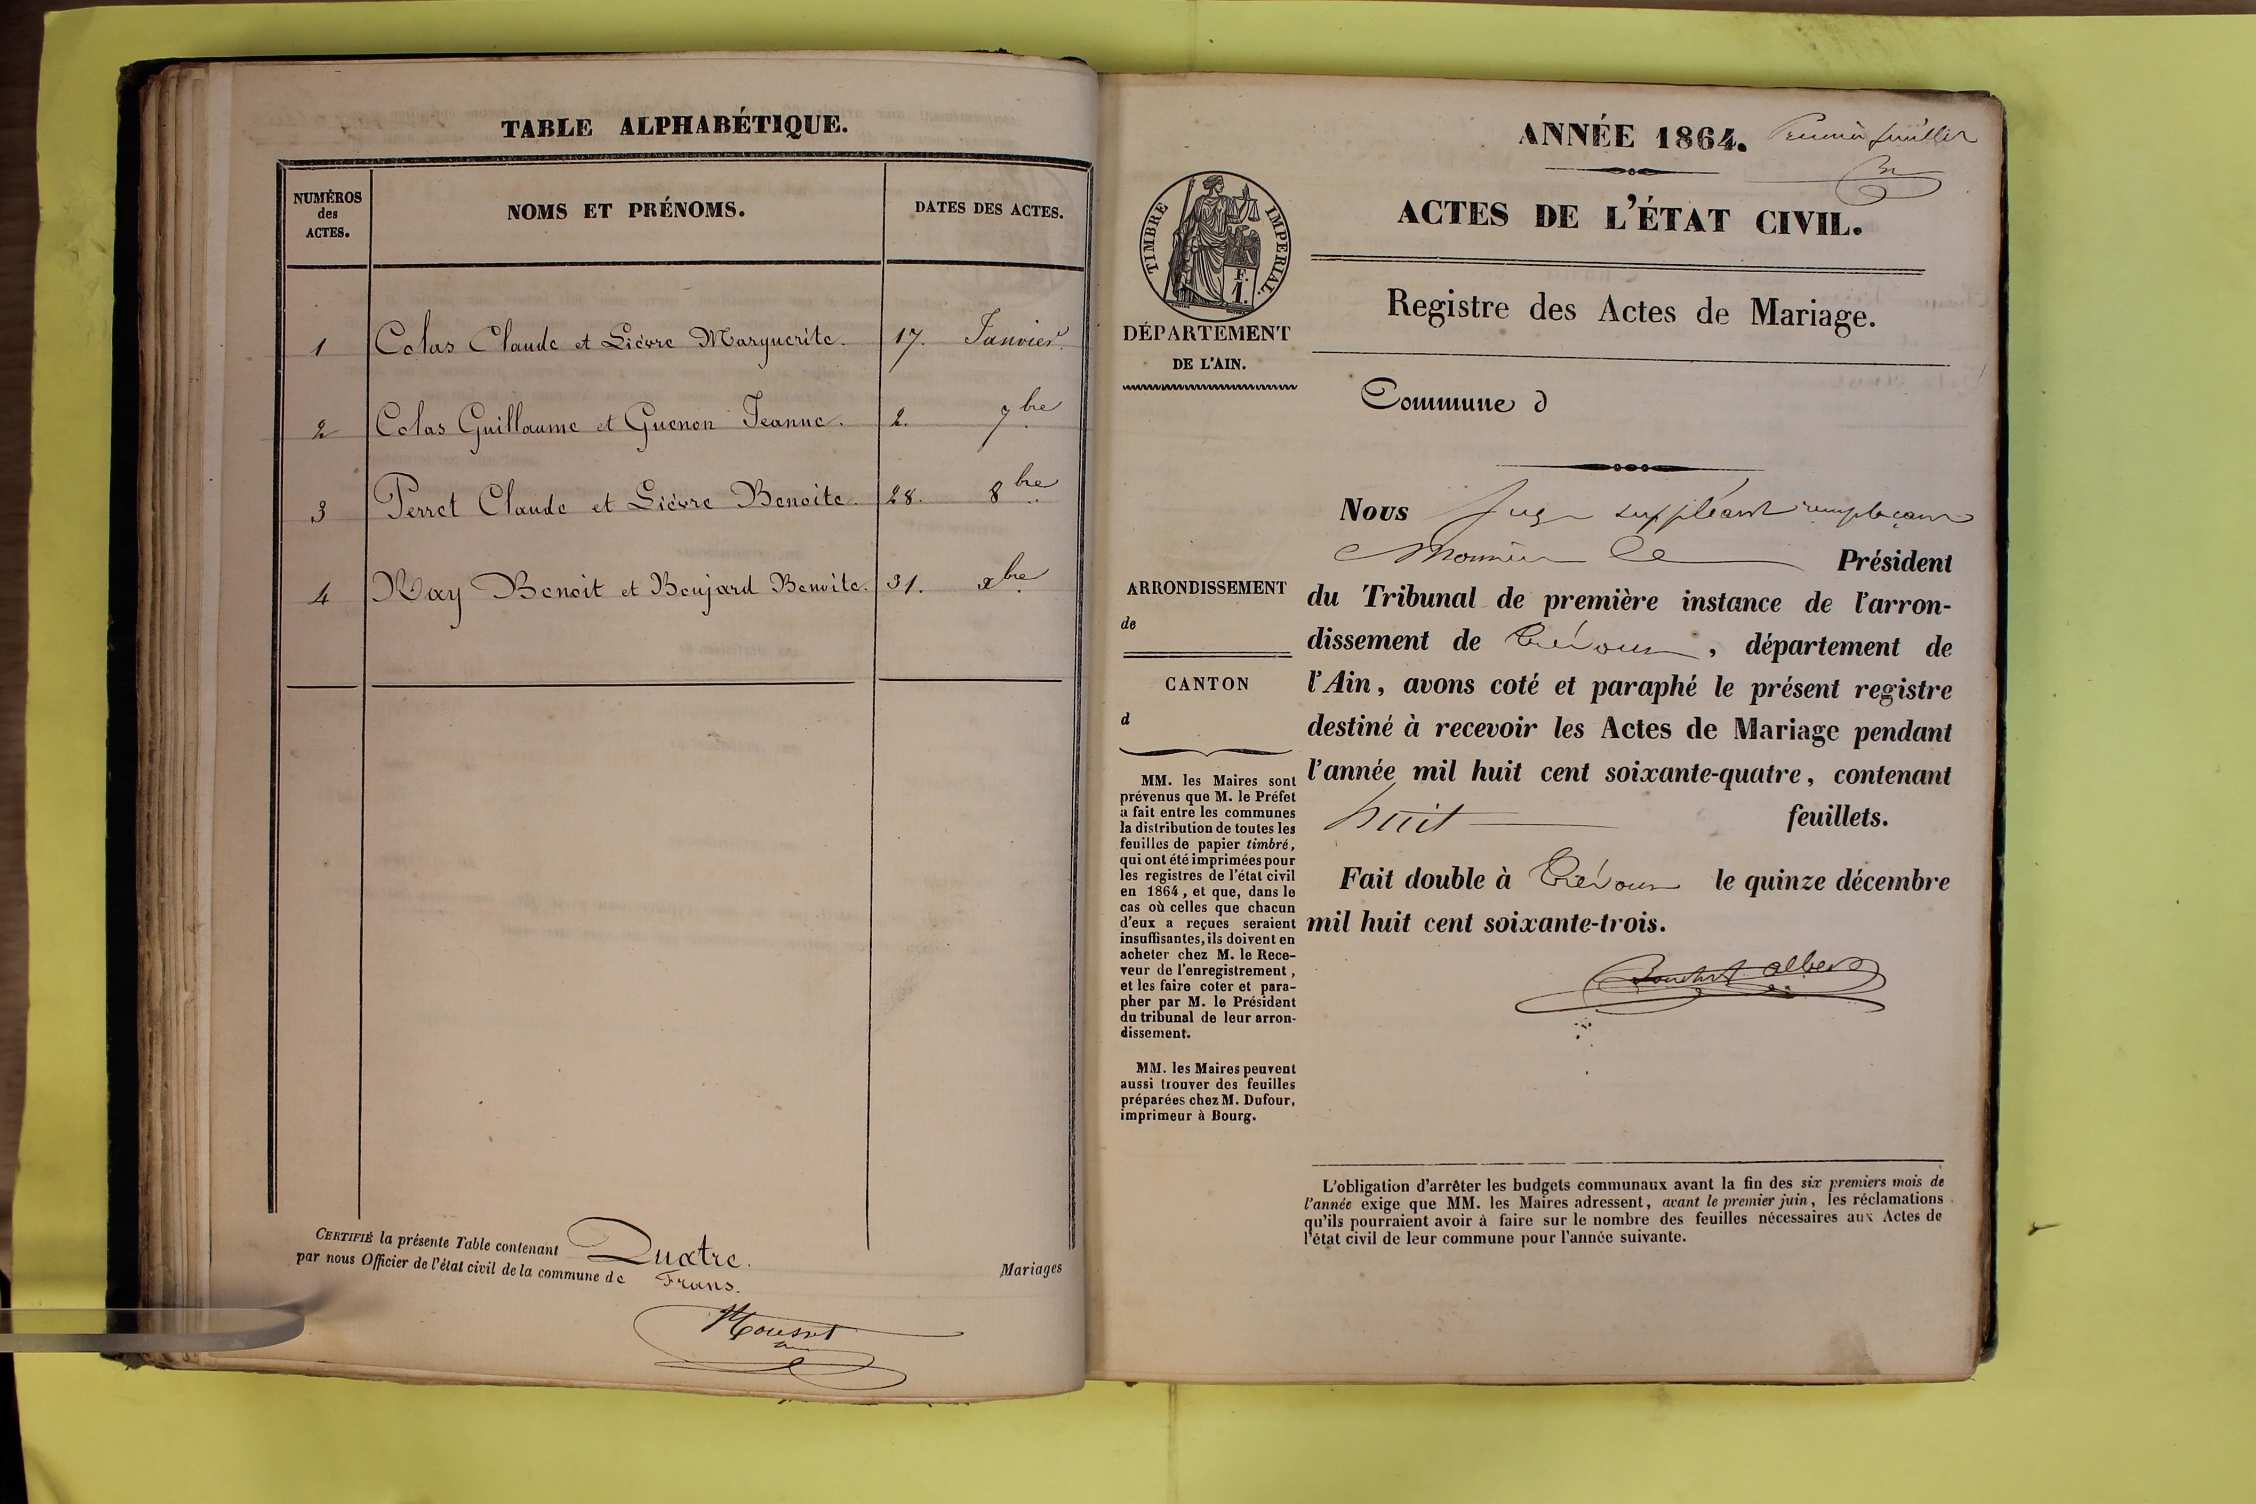 TABLE ALPHABÉTIQUE.
NUMÉROS
des
ACTES.
NOMS ET PRÉNOMS.
DATES DES ACTES.
1 Colas Claude et Lièvre Marguerite. 17. Janvier.
2 Colas Guillaume et Guenon Jeanne. 2. 7bre
3 Perret Claude et Lièvre Benoite. 28. 8bre
4 Ray Benoit et Boujard Benoite. 31. xbre
CERTIFIÉ la présente Table contenant Quatre. Mariages
par nous Officier de l'état civil de la commune de Frans.
ANNÉE 1864. Premier feuillet
ACTES DE L'ÉTAT CIVIL.
Registre des Actes de Mariage.
TIMBRE IMPERIAL.
F.
1.
DÉPARTEMENT
DE L'AIN.
Commune d
ARRONDISSEMENT
de
CANTON
d
MM. les Maires sont
prévenus que M. le Préfet
a fait entre les communes
la distribution de toutes les
feuilles de papier timbré,
qui ont été imprimées pour
les registres de l'état civil
en 1864, et que, dans le
cas où celles que chacun
d'eux a reçues seraient
insuffisantes, ils doivent en
acheter chez M. le Rece-
veur de l'enregistrement,
et les faire coter et para-
pher par M. le Président
du tribunal de leur arron-
dissement.
MM. les Maires peuvent
aussi trouver des feuilles
préparées chez M. Dufour,
imprimeur à Bourg.
Nous Juge suppléant remplaçant
Monsieur le Président
du Tribunal de première instance de l'arron-
dissement de Trévoux, département de
l'Ain, avons coté et paraphé le présent registre
destiné à recevoir les Actes de Mariage pendant
l'année mil huit cent soixante-quatre, contenant
huit feuillets.
Fait double à Trévoux le quinze décembre
mil huit cent soixante-trois.
L'obligation d'arrêter les budgets communaux avant la fin des six premiers mois de
l'année exige que MM. les Maires adressent, avant le premier juin, les réclamations
qu'ils pourraient avoir à faire sur le nombre des feuilles nécessaires aux Actes de
l'état civil de leur commune pour l'année suivante.